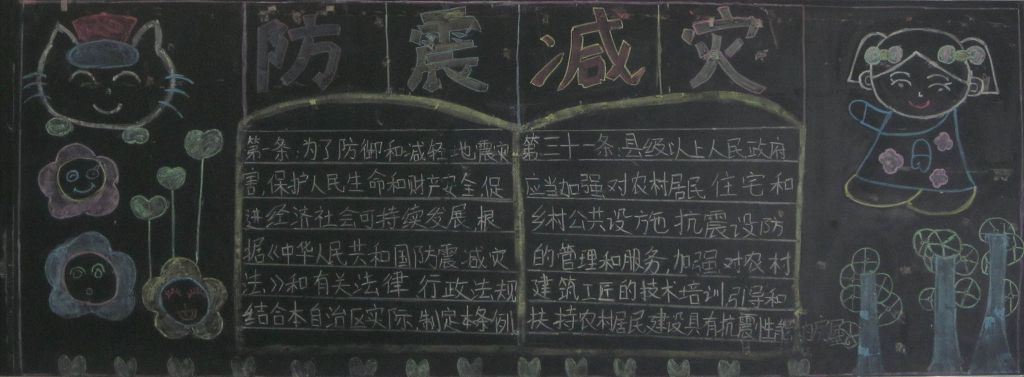 防震减灾
第一条:为了防御和减轻地震灾
害,保护人民生命和财产安全,促
进经济社会可持续发展,根
据《中华人民共和国防震减灾
法》和有关法律 行政法规
结合本自治区实际,制定本条例
第三十一条:县级以上人民政府
应当加强对农村居民住宅和
乡村公共设施抗震设防
的管理和服务,加强对农村
建筑工匠的技术培训,引导和
扶持农村居民建设具有抗震性能的